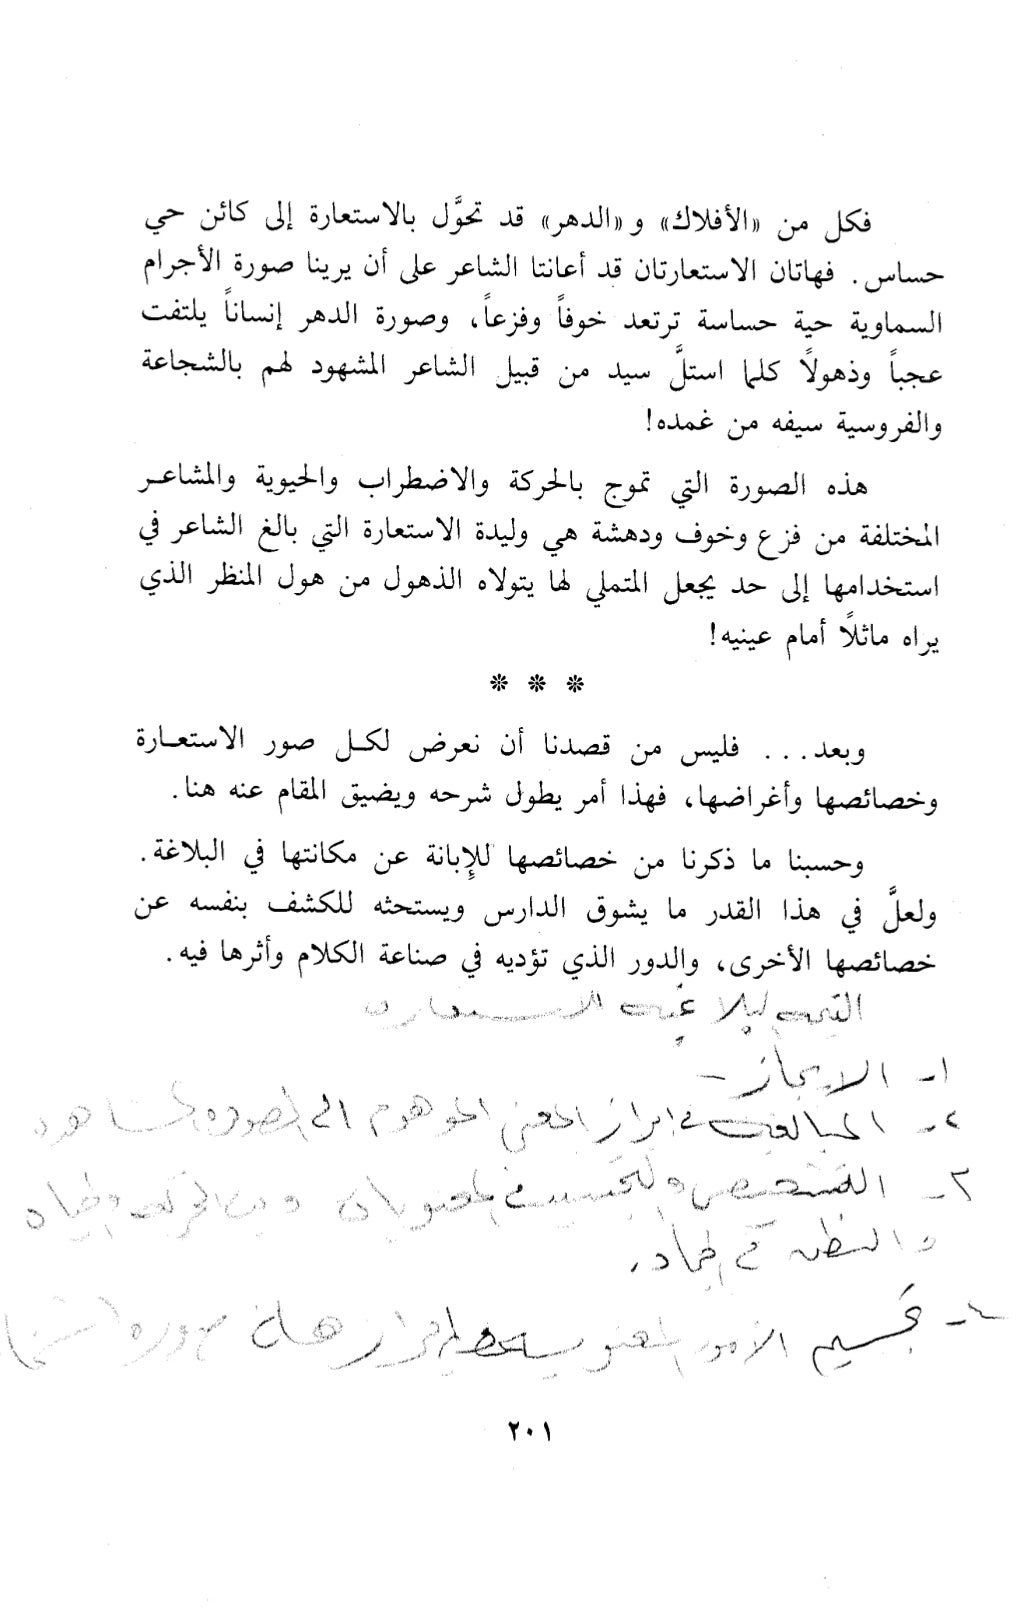 فكل من «الأفلاك» و«الدهر» قد تحوَّل بالاستعارة إلى كائن حي
حساس. فهاتان الاستعارتان قد أعانتا الشاعر على أن يرينا صورة الأجرام
السماوية حية حساسة ترتعد خوفاً وفزعاً، وصورة الدهر إنساناً يلتفت
عجباً وذهولًا كلما استلَّ سيد من قبيل الشاعر المشهود لهم بالشجاعة
والفروسية سيفه من غمده!
هذه الصورة التي تموج بالحركة والاضطراب والحيوية والمشاعر
المختلفة من فزع وخوف ودهشة هي وليدة الاستعارة التي بالغ الشاعر في
استخدامها إلى حد يجعل المتملي لها يتولاه الذهول من هول المنظر الذي
يراه ماثلًا أمام عينيه!
* * *
وبعد... فليس من قصدنا أن نعرض لكل صور الاستعارة
وخصائصها وأغراضها، فهذا أمر يطول شرحه ويضيق المقام عنه هنا.
وحسبنا ما ذكرنا من خصائصها للإِبانة عن مكانتها في البلاغة.
ولعلَّ في هذا القدر ما يشوق الدارس ويستحثه للكشف بنفسه عن
خصائصها الأخرى، والدور الذي تؤديه في صناعة الكلام وأثرها فيه.
القيمه البلاغيه للاستعاره
١- الايجاز -
٢- المبالغه في ابراز المعنى الموهوم الى الصوره المشاهده
٣- التشخيص والتجسيد في المعنويات وبث الحركه والحياه
والنطق في الجماد.
٤- تجسيم الأمور المعنويه
٢٠١